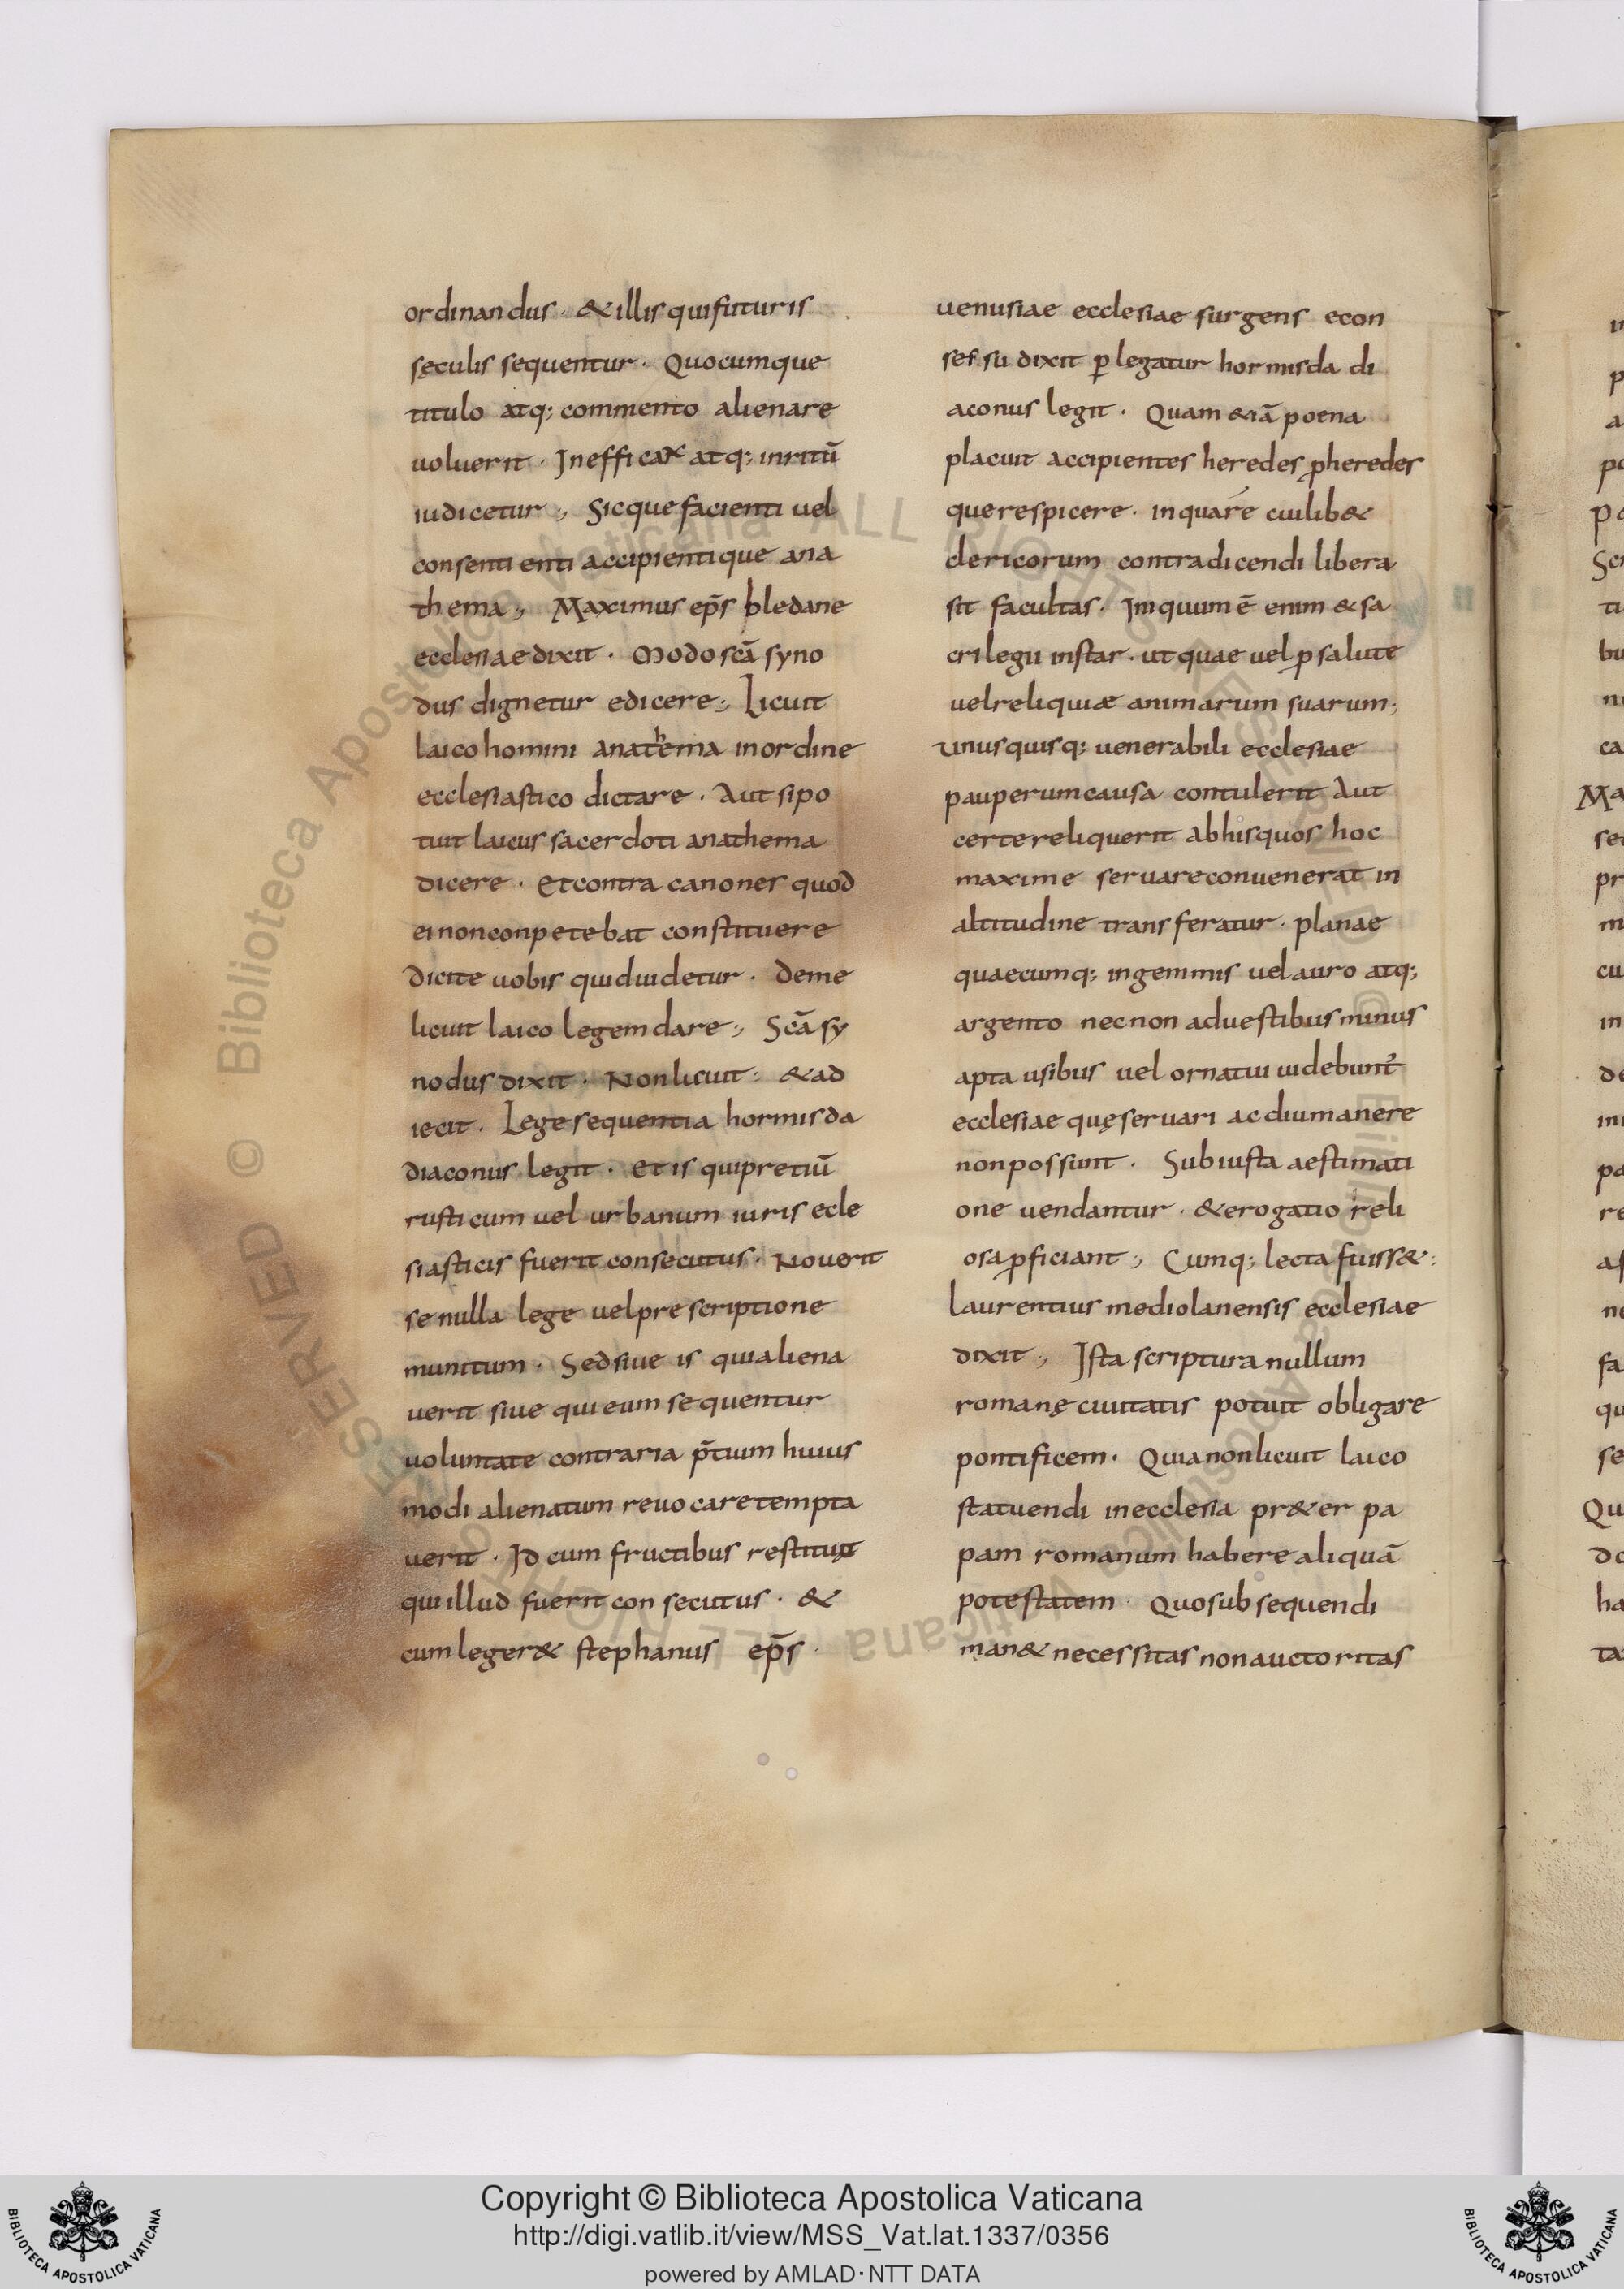 ordinandus · & illis qui futuris
sęculis sequentur · Quocumque
titulo atq; commento alienare
uoluerit · Inefficax atq; inritū
iudicetur ; Sicque facienti uel
consentienti accipientique ana
thema ; Maximus ep̄s bledane
ecclesiae dixit · Modo scā syno
dus dignetur edicere ; Licuit
laico homini anathema in ordine
ecclesiastico dictare · Aut si po
tuit laicus sacerdoti anathema
dicere · Et contra canones quod
ei non conpetebat constituere
dicite uobis quid uidetur · deme
licuit laico legem dare ; Scā sy
nodus dixit · Non licuit · & ad
iecit · Lege sequentia hormisda
diaconus legit · Et is qui pretiū
rusticum uel urbanum iuris ecle
siasticis fuerit consecutus · Nouerit
se nulla lege uel prescriptione
munitum · Sed siue is qui aliena
uerit siue qui eum sequentur
uoluntate contraria p̄tium huius
modi alienatum reuocare tempta
uerit · Id cum fructibus restituat
qui illud fuerit consecutus · &
cum leger& stephanus ep̄s ·
uenusiae ecclesiae surgens e con
sessu dixit p legatur hormisda di
aconus legit · Quam &iā poena
placuit accipientes heredes pheredes
que respicere · in qua rē cuilib&
clericorum contradicendi libera
sit facultas · Iniquum ē enim & sa
crilegii instar · ut quae uel p salute
uel reliquiæ animarum suarum ;
unusquisq; uenerabili ecclesiae
pauperum causa contulerit Aut
certe reliquerit ab his quos hoc
maxime seruare conuenerat in
altitudine transferatur · planae
quaecumq; in gemmis uel auro atq;
argento nec non ad uestibus minus
apta usibus uel ornatui uidebunt̄
ecclesiae quę seruari ac diu manere
non possunt · Sub iusta aestimati
one uendantur · & erogatio reli
osa pficiant ; Cumq; lecta fuiss& ·
laurentius mediolanensis ecclesiae
dixit ; Ista scriptura nullum
romanę ciuitatis potuit obligare
pontificem · Quia non licuit laico
statuendi in ecclesia pr&er pa
pam romanum habere aliquā
potestatem · Quo subsequendi
man& necessitas non auctoritas
Copyright © Biblioteca Apostolica Vaticana
http://digi.vatlib.it/view/MSS_Vat.lat.1337/0356
powered by AMLAD·NTT DATA
BIBLIOTECA APOSTOLICA VATICANA
BIBLIOTECA APOSTOLICA VATICANA